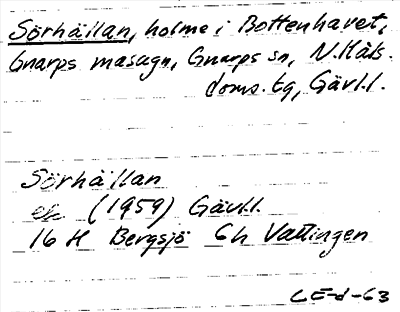 Sörhällan, holme i Bottenhavet,
Gnarps masugn, Gnarps sn, N. Häls.
doms. tg, Gävl.l.
Sörhällan
ek (1959) Gävl.l.
16 H Bergsjö 6h Vattingen
CE-d-63